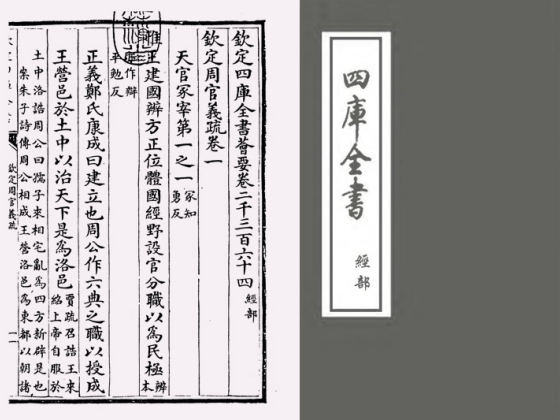 四庫全書
經部
欽定四庫全書薈要卷二千三百六十四 經部
欽定周官義疏卷一
天官冢宰第一之一 冢知勇反
惟王建國辨方正位體國經野設官分職以為民極 辨本
作辯平勉反
正義鄭氏康成曰建立也周公作六典之職以授成
王營邑於土中以治天下是為洛邑 賈疏召誥王來紹上帝自服於
土中洛誥周公曰孺子來相宅亂為四方新辟是也
案朱子詩傳周公相成王營洛邑為東都以朝諸
欽定周官義疏